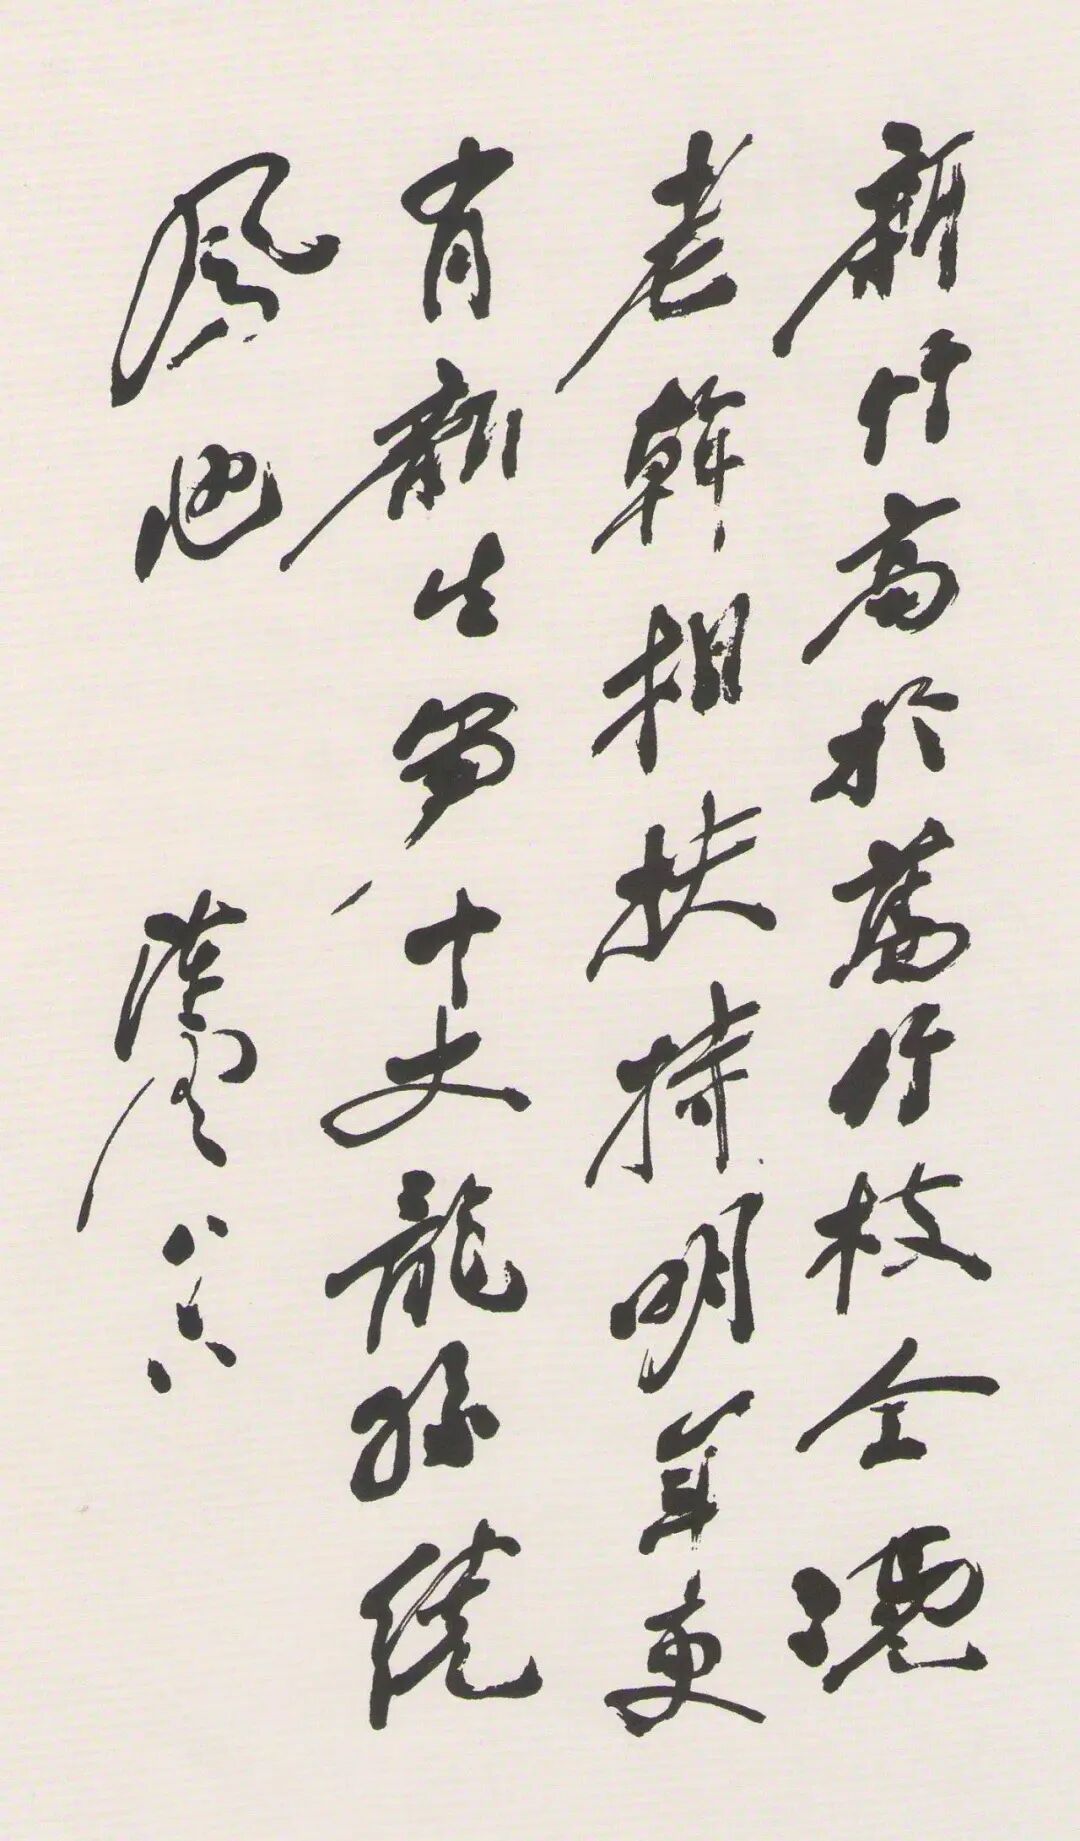 新竹高於舊竹枝全憑
老幹相扶持明年更
有新生十丈龍孫繞
鳳池 陳雲八六